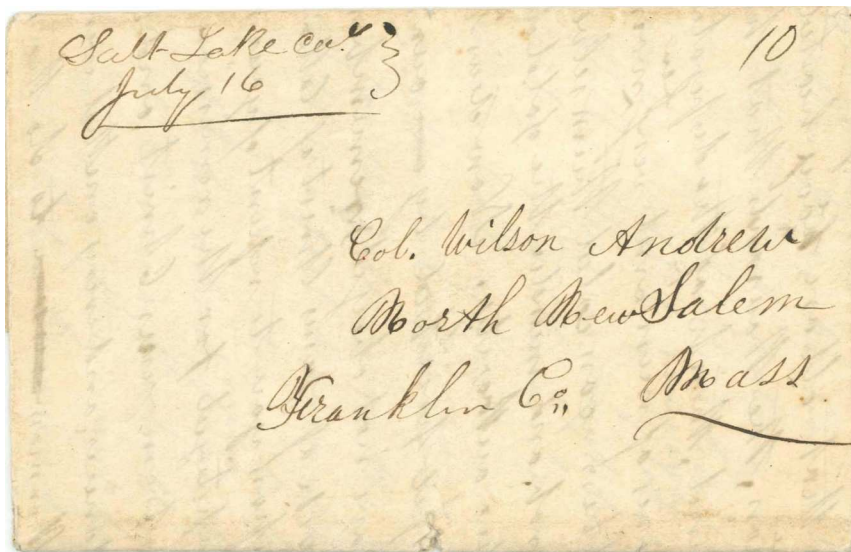 Salt Lake Co.
July 16
10
Col. Wilson Andrew
North New Salem
Franklin Co. Mass